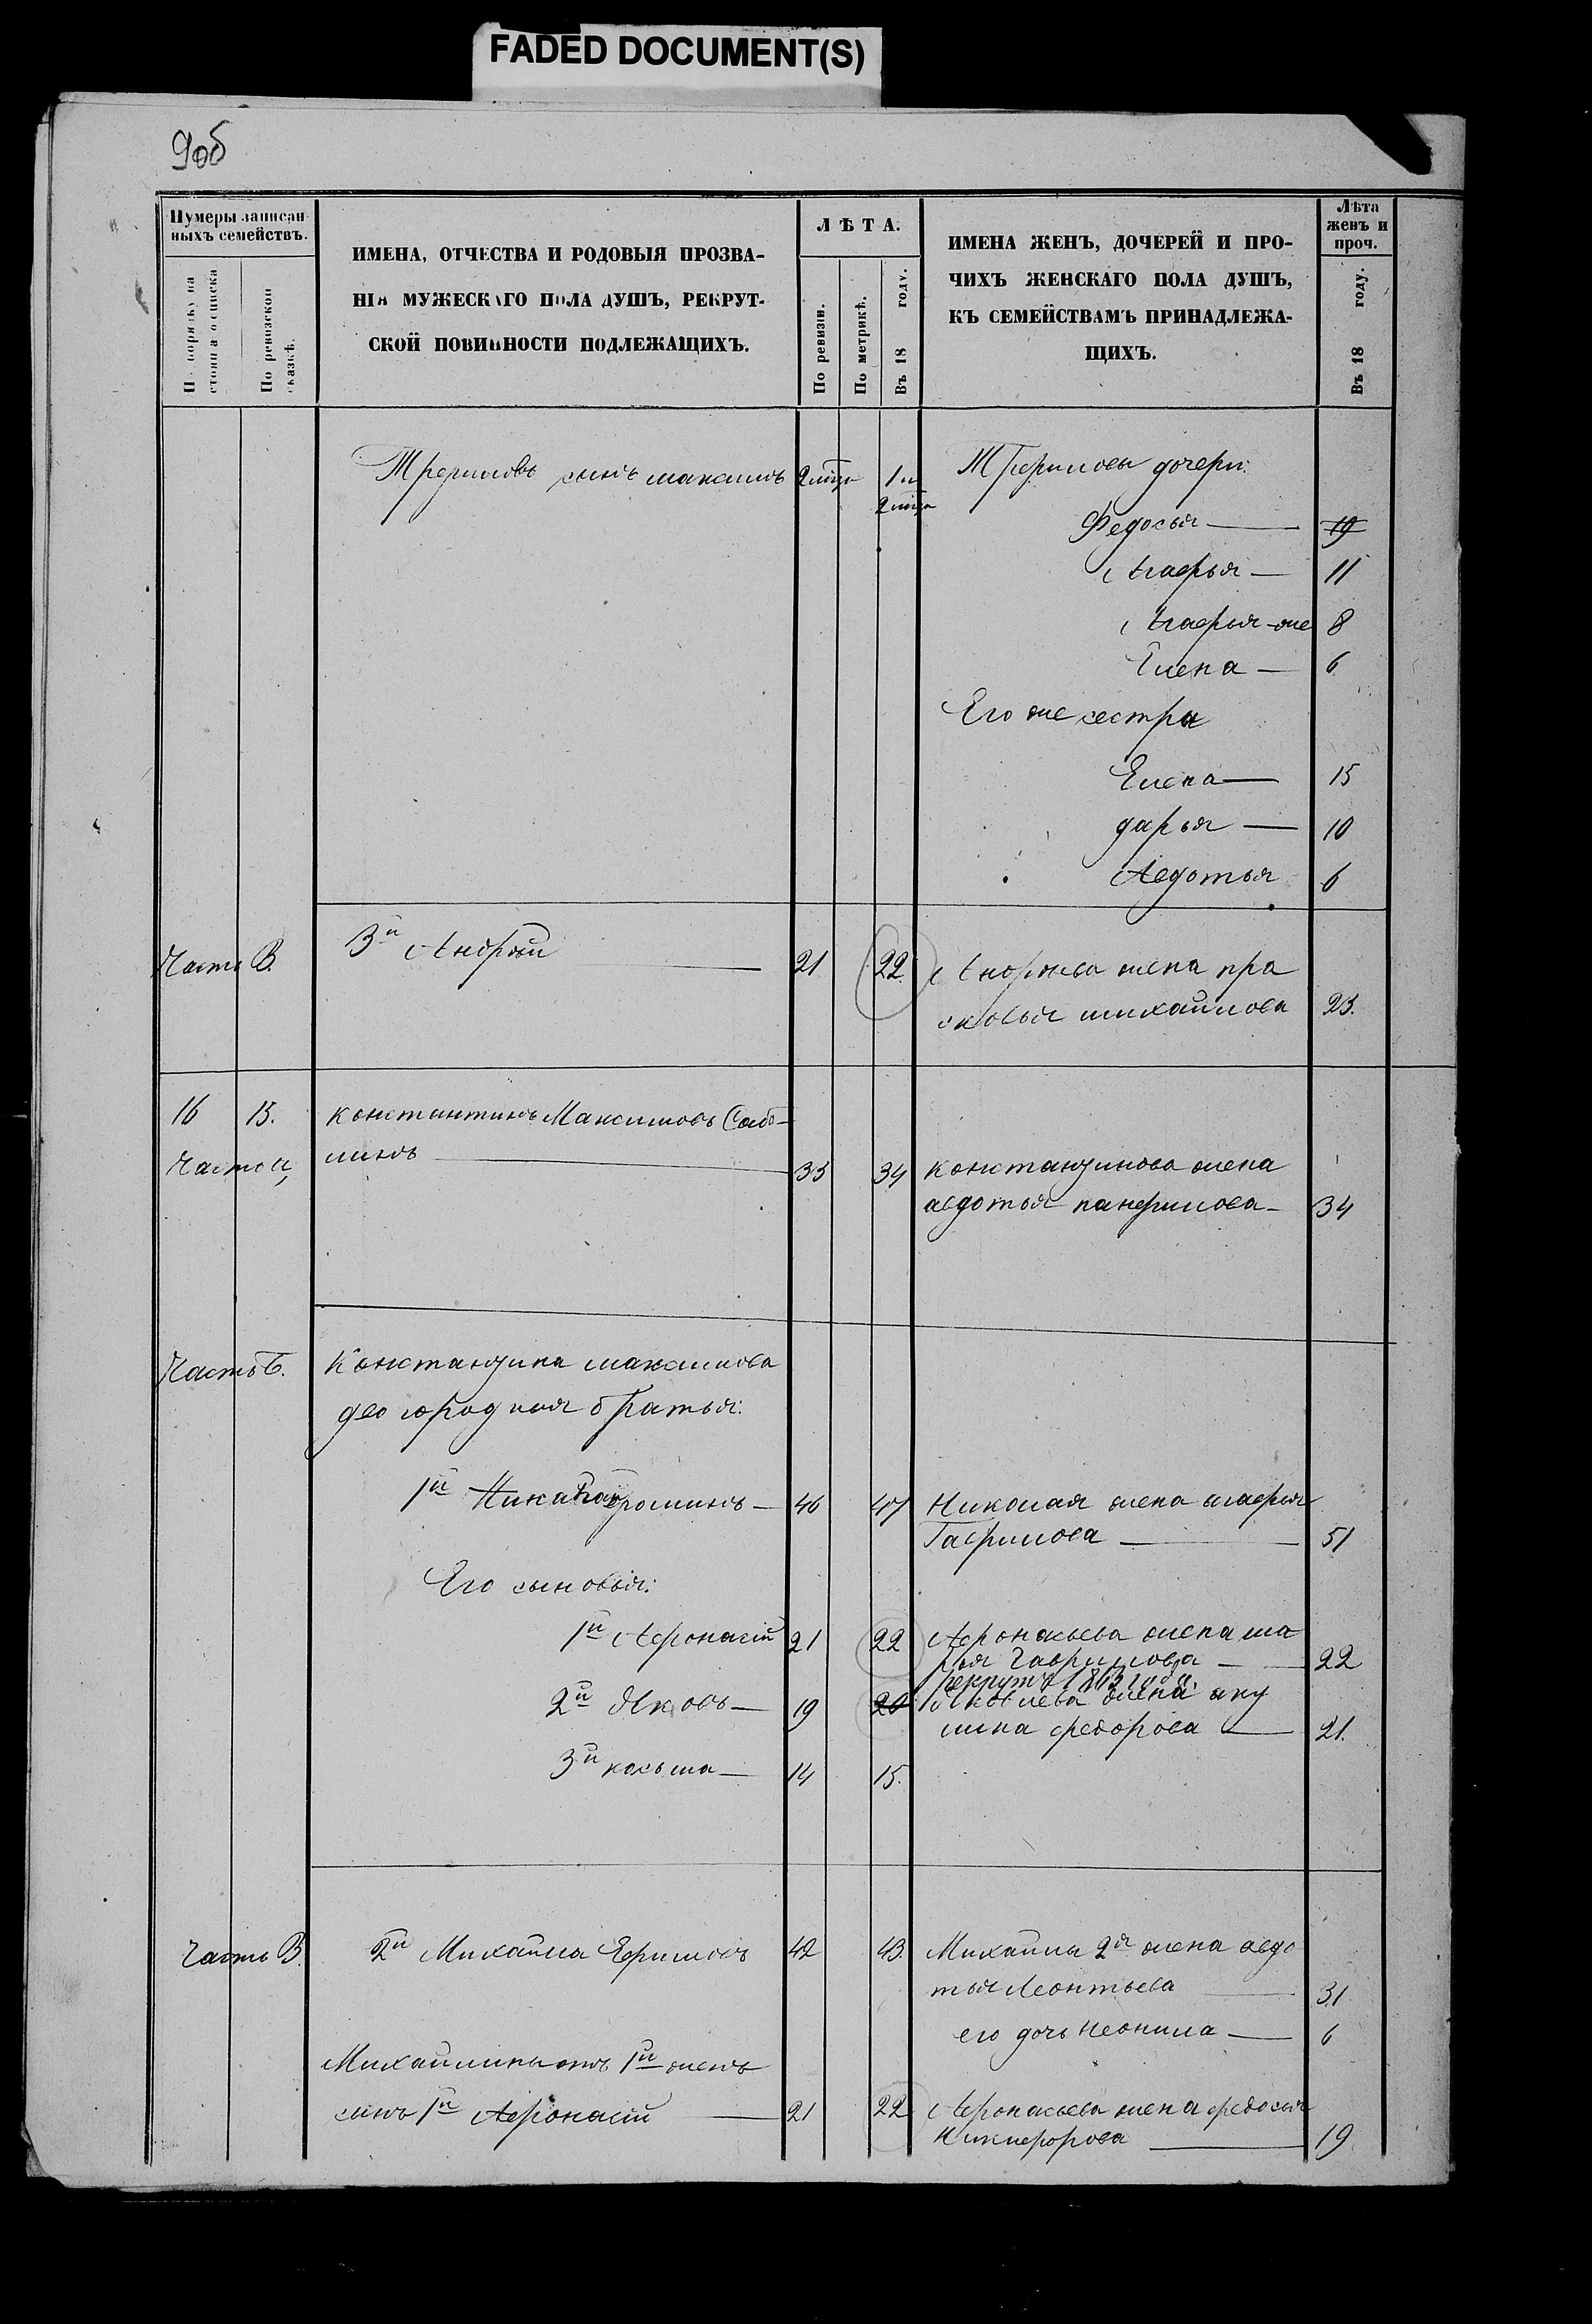 FADED DOCUMENT(S)
9об
Нумеры записан
ныхъ семействъ.
По порядку на
стоящаго списка
По ревизской
сказкѣ.
ИМЕНА, ОТЧЕСТВА И РОДОВЫЯ ПРОЗВА-
НІЯ МУЖЕСКАГО ПОЛА ДУШЪ, РЕКРУТ-
СКОЙ ПОВИННОСТИ ПОДЛЕЖАЩИХЪ.
ЛѢТА.
По ревизіи.
По метрикѣ.
Въ 18 году.
ИМЕНА ЖЕНЪ, ДОЧЕРЕЙ И ПРО-
ЧИХЪ ЖЕНСКАГО ПОЛА ДУШЪ,
КЪ СЕМЕЙСТВАМЪ ПРИНАДЛЕЖА-
ЩИХЪ.
Лѣта
женъ и
проч.
Въ 18 году.
Трефиловъ сынъ максимъ 1 и Трефиловы дочери:
Федосья — 19
Агафья — 11
Агафья же 8
Елена — 6
Его же сестры
Елена — 15
дарья — 10
Авдотья 6
Часть В. 3й Андрей — 21 22 Андреева жена пра
сковья михайлова 23.
16 15. константинъ Максимовъ
Часть а, — 33 34 константинова жена
авдотья панфилова — 34
Часть б. Константина максимова
двоюродныя братья:
1й — 46 47 Николая жена агафья
Гаврилова — 51
Его сыновья:
1й Афонасій 21 22 Афонасьева жена ма
рья Гаврилова — 22
рекрутъ 1863 года.
2й Яковъ — 19 20 Яковлева жена аку
лина федорова — 21.
3й косьма — 14 15.
Часть В. 2й Михайла Ефимовъ 42 43. Михайлы 2я жена авдо
тья Леонтьева — 31
его дочь Неонила — 6
Михайлины отъ 1й жены
сынъ 1й Афонасій — 21 22 Афонасьева жена федосья
Никифорова — 19